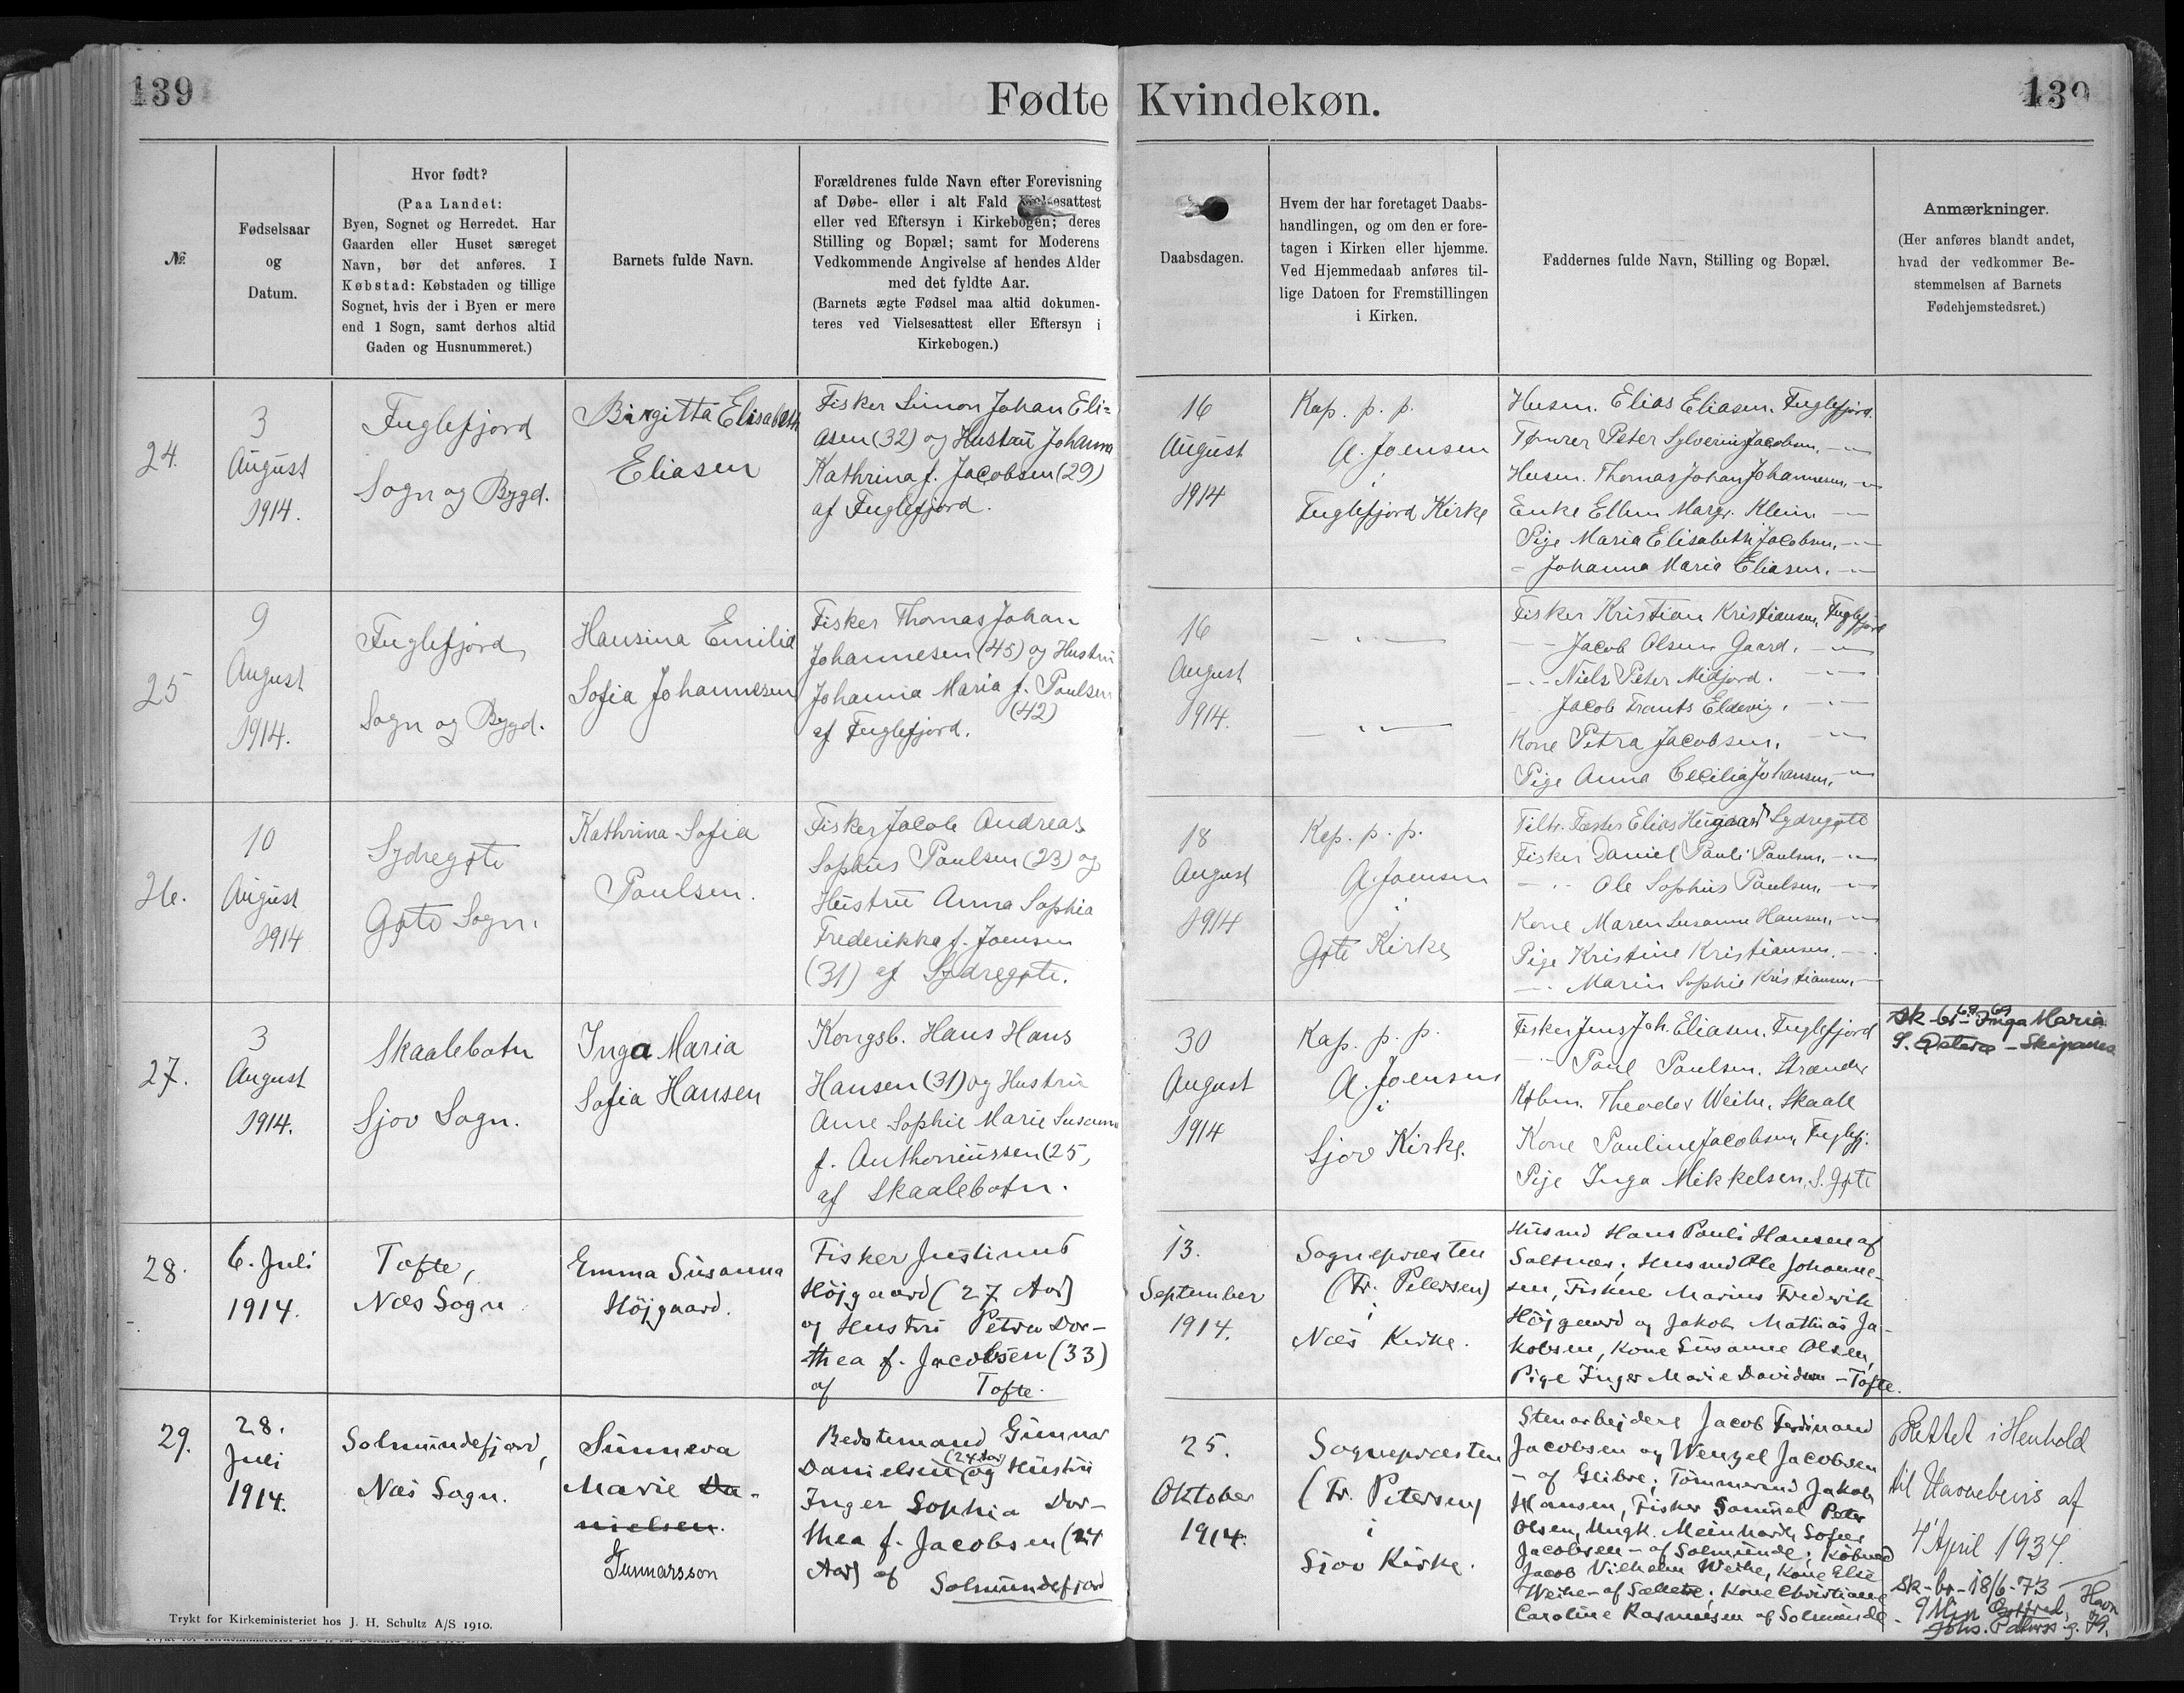 139
Fødte Kvindekøn.
139
№.
Fødselsaar
og
Datum.
Hvor født?
(Paa Landet:
Byen, Sognet og Herredet. Har
Gaarden eller Huset særeget
Navn, bør det anføres. I
Købstad: Købstaden og tillige
Sognet, hvis der i Byen er mere
end 1 Sogn, samt derhos altid
Gaden og Husnummeret.)
Barnets fulde Navn.
Forældrenes fulde Navn efter Forevisning
af Døbe- eller i alt Fald Fødselsattest
eller ved Eftersyn i Kirkebogen; deres
Stilling og Bopæl; samt for Moderens
Vedkommende Angivelse af hendes Alder
med det fyldte Aar.
(Barnets ægte Fødsel maa altid dokumen-
teres ved Vielsesattest eller Eftersyn i
Kirkebogen.)
Daabsdagen.
Hvem der har foretaget Daabs-
handlingen, og om den er fore-
tagen i Kirken eller hjemme.
Ved Hjemmedaab anføres til-
lige Datoen for Fremstillingen
i Kirken.
Faddernes fulde Navn, Stilling og Bopæl.
Anmærkninger.
(Her anføres blandt andet,
hvad der vedkommer Be-
stemmelsen af Barnets
Fødehjemstedsret.)
24.
3
August
1914.
Fuglefjord
Sogn og Bygd.
Birgitta Elisabeth
Eliasen
Fisker Simon Johan Eli=
asen (32) og Hustru Johanna
Kathrina f. Jacobsen (29)
af Fuglefjord.
16
August
1914
Kap. p. p.
A. Joensen
i
Fuglefjord Kirke
Husm. Elias Eliasen. Fuglefjord.
Tømrer Peter Sylverius Jacobsen. -"-
Husm. Thomas Johan Johannesen, -"-
Enke Ellen Margr. Klein. -"-
Pige Maria Elisabeth Jacobsen, -"-
- Johanna Maria Eliasen. -"-
25
9
August
1914.
Fuglefjord
Sogn og Bygd.
Hansina Emilia
Sofia Johannesen
Fisker Thomas Johan
Johannesen (45) og Hustru
Johanna Maria f. Poulsen
(42)
af Fuglefjord.
16
August
1914.
-"-
-"-
Fisker Kristian Kristiansen, Fuglefjord
-"- Jacob Olsen Gaard. -"-
-"- Niels Peter Midjord. -"-
Jacob Frants Eldevig. -"-
Kone Petra Jacobsen. -"-
Pige Anna Cecilia Johansen, -"-
26.
10
August
1914
Sydregøte
Gøte Sogn.
Kathrina Sofia
Poulsen.
Fisker Jacob Andreas
Sophus Poulsen (23) og
Hustru Anna Sophia
Frederikka f. Joensen
(31) af Sydregøte.
18
August
1914
Kap. p. p.
A. Joensen
i
Gøte Kirke
Elias Sydregøte
Fisker Daniel Pauli Poulsen, -"-
-"- Ole Sophus Poulsen, -"-
Kone Maren Susanne Hansen, -"-
Pige Kristine Kristiansen. -"-
-"- Marin Sophie Kristiansen. -"-
27.
3
August
1914.
Skaalebotn
Sjov Sogn.
Inga Maria
Sofia Hansen
Kongsb. Hans Hans
Hansen (31) og Hustru
Ane Sophie Marie Susanna
f. Anthoniussen (25,
af Skaalebotn.
30
August
1914
Kap. p. p.
A. Joensen
i
Sjov Kirke.
Fisker Jens Joh. Eliasen. Fuglefjord
-"- Poul Poulsen. Strænder
Købm. Theodor Weihe. Skaale
Kone Pauline Jacobsen, Fuglefj.
Pige Inga Mikkelsen, S. Gøte
Inga Maria
28.
6. Juli
1914.
Tofte,
Næs Sogn.
Emma Susanna
Højgaard.
Fisker Justinus
Højgaard (27 Aar)
og Hustru Petra Dor-
thea f. Jacobsen (33)
af Tofte.
13.
September
1914.
Sognepræsten
(Fr. Petersen)
i
Næs Kirke.
Husmd Hans Pauli Hansen af
Saltnæs; Husmd Ole Johanne-
sen, Fiskere Marius Frederik
Højgaard og Jakob Mathias Ja-
kobsen, Kone Susanne Olsen,
Pige Inger Marie Davidsen - Tofte.
29.
28.
Juli
1914.
Solmundefjord,
Næs Sogn.
Sunneva
Marie Da-
nielsen.
Gunnarsson
Bedstemand Gunnar
Danielsen (24 Aar) og Hustru
Inger Sophia Dor-
thea f. Jacobsen (24
Aar) af Solmundefjord
25.
Oktober
1914.
Sognepræsten
(Fr. Petersen)
i
Sjov Kirke.
Stenarbejdere Jacob Ferdinand
Jacobsen og Wenzel Jacobsen
- af Glibre; Tømmermd Jakob
Hansen, Fisker Samuel Peter
Olsen, Ungk. Meinhardt Sofus
Jacobsen - af Solmunde; Købmd
Jacob Vilhelm Weihe, Kone Else
Weihe - af Selletræ; Kone Christiane
Caroline Rasmussen af Solmunde.
Rettet i Henhold
til Navnebevis af
4' April 1934.
Sk-br-18/6-73
Trykt for Kirkeministeriet hos J. H. Schultz A/S 1910.